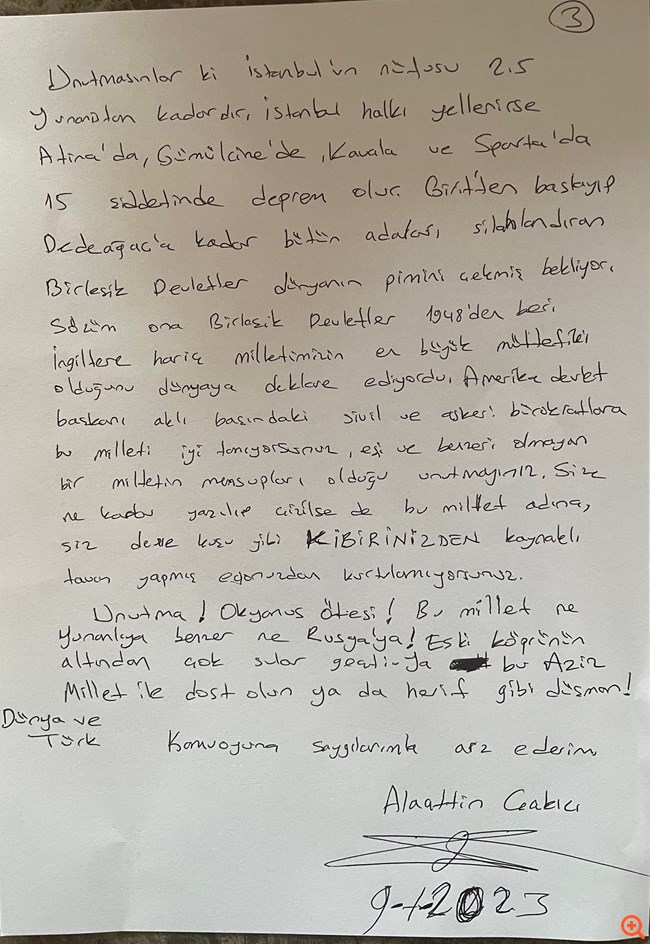 3
Unutmasınlar ki İstanbul'un nüfusu 2.5
Yunanistan kadardır, istanbul halkı yellenirse
Atina'da, Gümülcine'de, Kavala ve Sparta'da
15 şiddetinde deprem olur. Girit'ten başlayıp
Dedeağaç'a kadar bütün adaları, silahlandıran
Birleşik Devletler dünyanın pimini çekmiş bekliyor.
Sözüm ona Birleşik Devletler 1948'den beri
İngiltere hariç milletimizin en büyük müttefiki
olduğunu dünyaya deklare ediyordu. Amerika devlet
başkanı aklı başındaki sivil ve askeri bürokratlara
bu milleti iyi tanıyorsunuz, eşi ve benzeri olmayan
bir milletin mensupları olduğu unutmayınız. Size
ne kadar yazılıp çizilse de bu millet adına,
siz deve kuşu gibi KİBİRİNİZDEN kaynaklı
tavan yapmış egonuzdan kurtulamıyorsunuz.
Unutma! Okyanus Ötesi! Bu millet ne
Yunanlıya benzer ne Rusya'ya! Eski köprünün
altından çok sular geçti. Ya bu Aziz
Millet ile dost olun ya da herif gibi düşman!
Dünya ve
Türk Kamuoyuna saygılarımla arz ederim.
Alaattin Çakıcı
9-1-2023